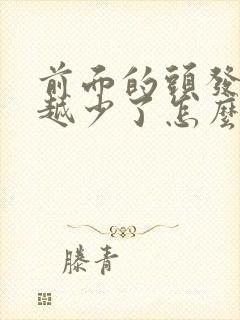 前面的頭發
越少了怎麼
滕青